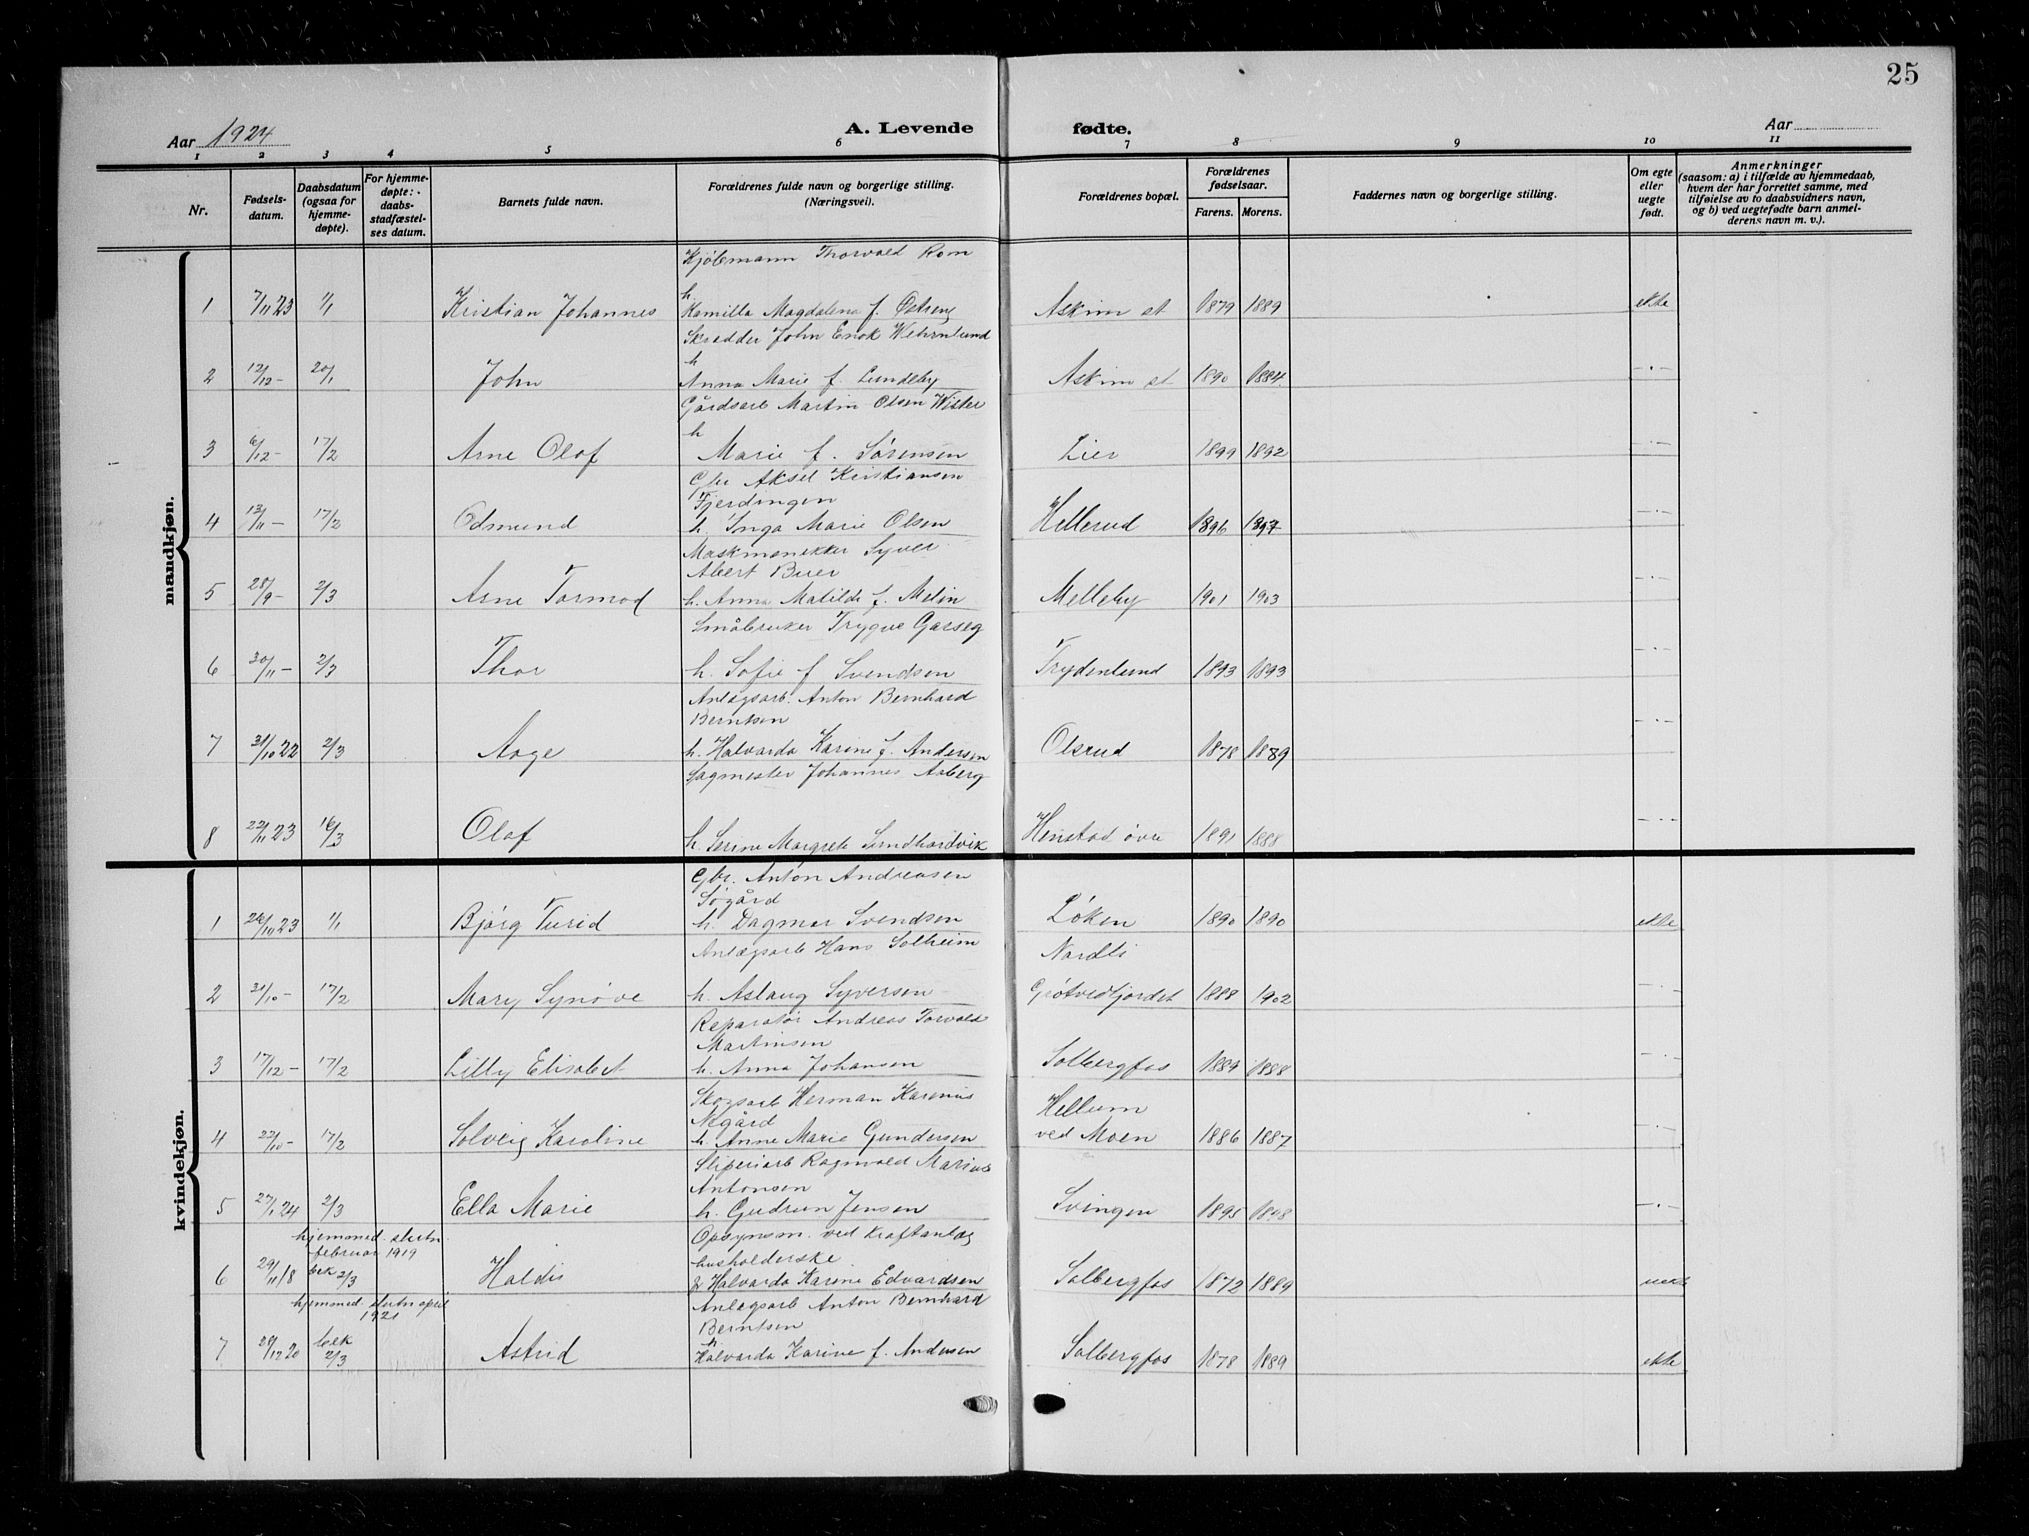 25
Aar 1924
A. Levende fødte.
Aar
1 2 3 4 5 6 7 8 9 10 11
Nr.
Fødsels-
datum.
Daabsdatum
(ogsaa for
hjemme-
døpte).
For hjemme-
døpte:
daabs-
stadfæstel-
ses datum.
Barnets fulde navn.
Forældrenes fulde navn og borgerlige stilling.
(Næringsvei).
Forældrenes bopæl.
Forældrenes
fødselsaar.
Farens. Morens.
Faddernes navn og borgerlige stilling.
Om egte
eller
uegte
født.
Anmerkninger
(saasom: a) i tilfælde av hjemmedaab,
hvem der har forrettet samme, med
tilføielse av to daabsvidners navn,
og b) ved uegtefødte barn anmel-
derens navn m. v.).
mandkjøn.
Kjøbmann Thorvald Rom
h
1 7/11 23 1/1 Kristian Johannes Kamilla Magdalena f. Østreng Askim st 1879 1889 ekte
Skredder John Enok Wehrnlund
h
2 12/12 - 20/1 John Anna Marie f. Lundeby Askim st 1890 1884 - . -
Gårdsarb Martin Olsen Wister
h
3 6/12 - 17/2 Arne Olaf Marie f. Sørensen Lier 1899 1892 - . -
Gbr Aksel Kristiansen
Fjerdingen
4 13/11 - 17/2 Odmund h. Inga Marie Olsen Hellerud 1896 1897 - . -
Maskmenikker Syver
Abert Buer
5 28/9 - 2/3 Arne Tormod h. Anna Matilde f. Melin Melleby 1901 1903 - . -
Småbruker Trygve Garseg
6 30/11 - 2/3 Thor h. Sofie f Svendsen Frydenlund 1893 1893 - . -
Anlægsarb. Anton Bernhard
Berntsen
7 31/10 22 2/3 Aage h. Halvarda Karine f. Andersen Olsrud 1878 1889 - . -
Sagmester Johannes Asberg
8 22/11 23 16/3 Olaf h. Serine Margrete Sundhordvik Henstad øvre 1891 1888 - . -
kvindekjøn.
Gbr. Anton Andreasen
Søgård
1 24/10 23 1/1 Bjørg Turid h. Dagmar Svendsen Løken 1890 1890 ekte
Anlægsarb Hans Solheim Nordli
2 31/10 - 17/2 Mary Synøve h. Aslaug Syversen Grøtvedtjordet 1888 1902 - . -
Reparatør Andreas Torvald
Martinsen
3 17/12 - 17/2 Lilly Elisabet h. Anna Johansen Solbergfos 1889 1888 - . -
Skogsarb Herman Karenius Hellum
Nøgård
4 22/10 - 17/2 Solveig Karoline h. Anne Marie Gundersen ved Moen 1886 1887 - . -
Sliperiarb Ragnvald Marius
Antonsen
5 27/1 24 2/3 Ella Marie h. Gudrun Jensen Svingen 1895 1898 - . -
hjemmed. slutn Opsynsm. ved Kraftanlæg
februar 1919 husholderske
6 29/11 18 bek 2/3 Haldis Halvarda Karine Edvardsen Solbergfos 1872 1889 uekte
hjemmed slutn april Anlægsarb Anton Bernhard
1921 Berntsen
h
7 28/12 20 bek 2/3 Astrid Halvarda Karine f. Andersen Solbergfos 1878 1889 ekte